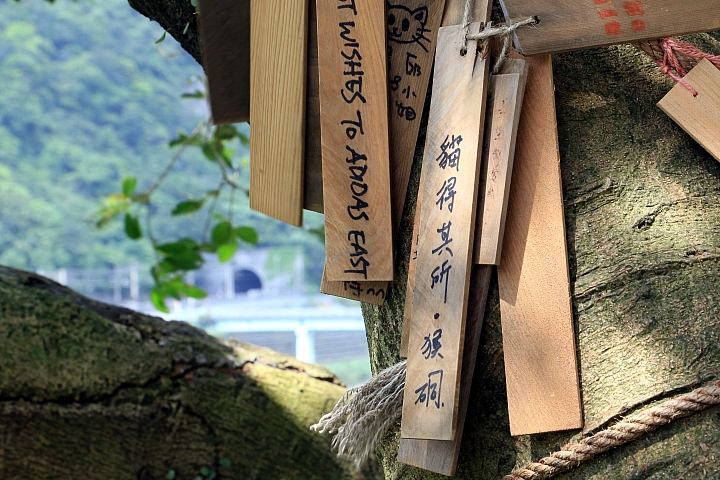 T WISHES TO ADIDAS EAST
小姐
貓得其所・猴硐